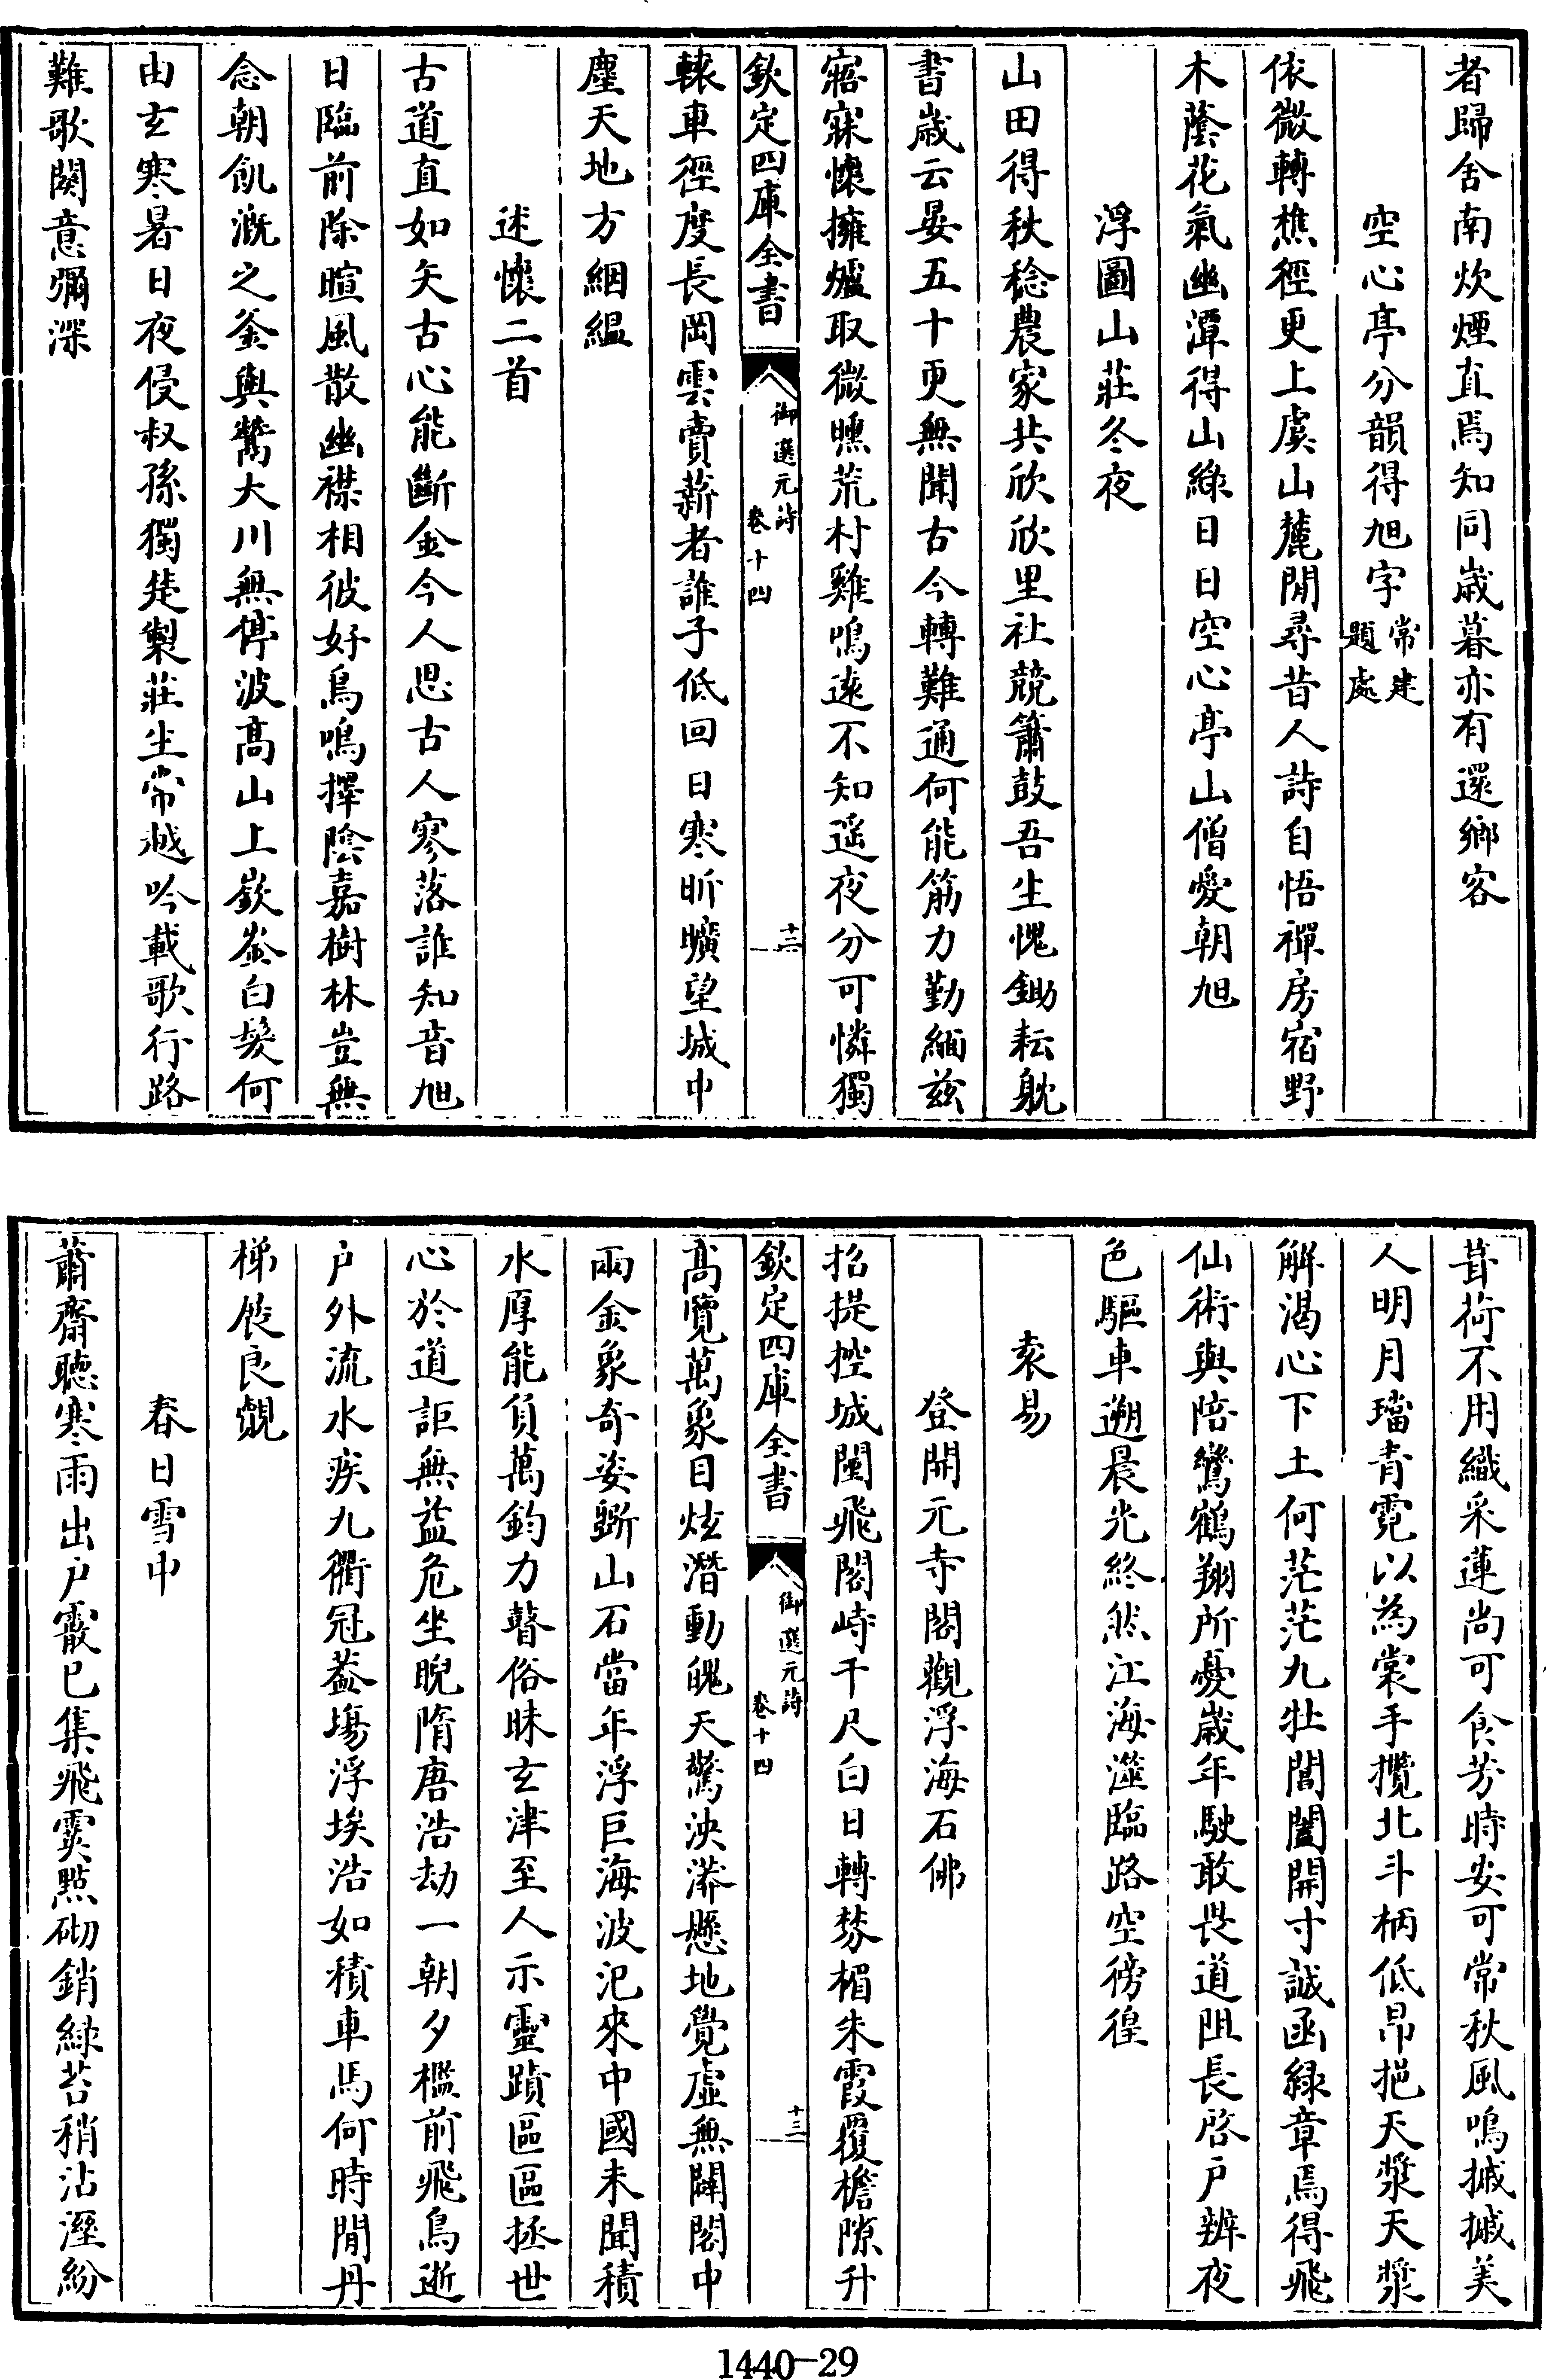 者歸舍南炊煙直焉知同嵗暮亦有還鄉客
空心亭分韻得旭字常建題處
依微轉樵徑更上虞山麓閒尋昔人詩自悟禪房宿野
木蔭花氣幽潭得山綠日日空心亭山僧愛朝旭
浮圖山莊冬夜
山田得秋稔農家共欣欣里社競簫鼓吾生愧鋤耘躭
書嵗云晏五十更無聞古今轉難通何能筋力勤緬兹
寤寐懐擁爐取微曛荒村雞鳴遠不知遥夜分可憐獨
欽定四庫全書
御選元詩
卷十四
十二
轅車徑度長岡雲賣薪者誰子低回日寒昕曠望城中
塵天地方絪縕
述懐二首
古道直如矢古心能斷金今人思古人寥落誰知音旭
日臨前除暄風散幽襟相彼好鳥鳴擇陰嘉樹林豈無
念朝飢溉之釜與鬵大川無停波髙山上嶔崟白髮何
由玄寒暑日夜侵叔孫獨楚製莊生常越吟載歌行路
難歌闋意彌深
葺荷不用織采蓮尚可食芳時安可常秋風鳴摵摵美
人明月璫青霓以為裳手攬北斗柄低昂挹天漿天漿
解渴心下土何茫茫九牡閶闔開寸誠函緑章焉得飛
仙術與陪鸞鶴翔所憂嵗年駛敢畏道阻長啓户辨夜
色驅車遡晨光終然江海澨臨路空徬徨
袁易
登開元寺閣觀浮海石佛
招提控城闉飛閣峙千尺白日轉棼楣朱霞覆檐隙升
欽定四庫全書
御選元詩
卷十四
十三
髙覽萬象目炫潛動魄天驚泱漭懸地覺虛無闢閣中
兩金象奇姿斲山石當年浮巨海波汜來中國未聞積
水厚能負萬鈞力瞽俗昧玄津至人示靈蹟區區拯世
心於道詎無益危坐睨隋唐浩劫一朝夕檻前飛鳥逝
户外流水疾九衢冠葢塲浮埃浩如積車馬何時閒丹
梯展良覿
春日雪中
蕭齋聽寒雨出户霰已集飛霙點砌銷緑苔稍沾溼紛
1440-29